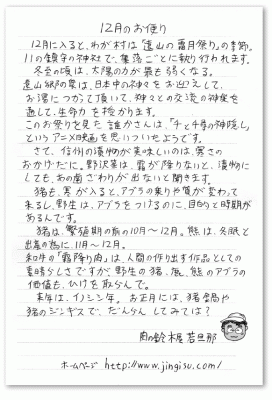 12月のお便り
12月に入ると、わが村は「遠山の霜月祭り」の季節。
11の鎮守の神社で、集落ごとに執り行われます。
冬至の頃は、太陽の力が最も弱くなる。
遠山郷の衆は、日本中の神々をお迎えして、
お湯につかって頂いて、神々との交流の神座を
通して、生命力を授かります。
このお祭りを見た誰かさんは、「千と千尋の神隠し」
というアニメ映画を思いついたようです。
さて、信州の漬物が美味しいのは、寒さの
おかげだに。野沢菜は、霜が降りないと、漬物に
しても、あの歯ざわりが出ないと聞きます。
猪も、寒が入ると、アブラの乗りや質が変わって
来るし、野生は、アブラをつけるのに、目的と時期が
あるんです。
猪は、繁殖期の前の10月~12月。熊は、冬眠と
出産の為に、11月~12月。
和牛の「霜降り肉」は、人間の作り出す作品としての
素晴らしさですが、野生の猪、鹿、熊のアブラの
価値も、ひけを取らんで。
来年は、イノシシ年。お正月には、猪鍋や
猪のジンギスで、だんらんしてみては?
肉の鈴木屋 若旦那
ホームページ http://www.jingisu.com/